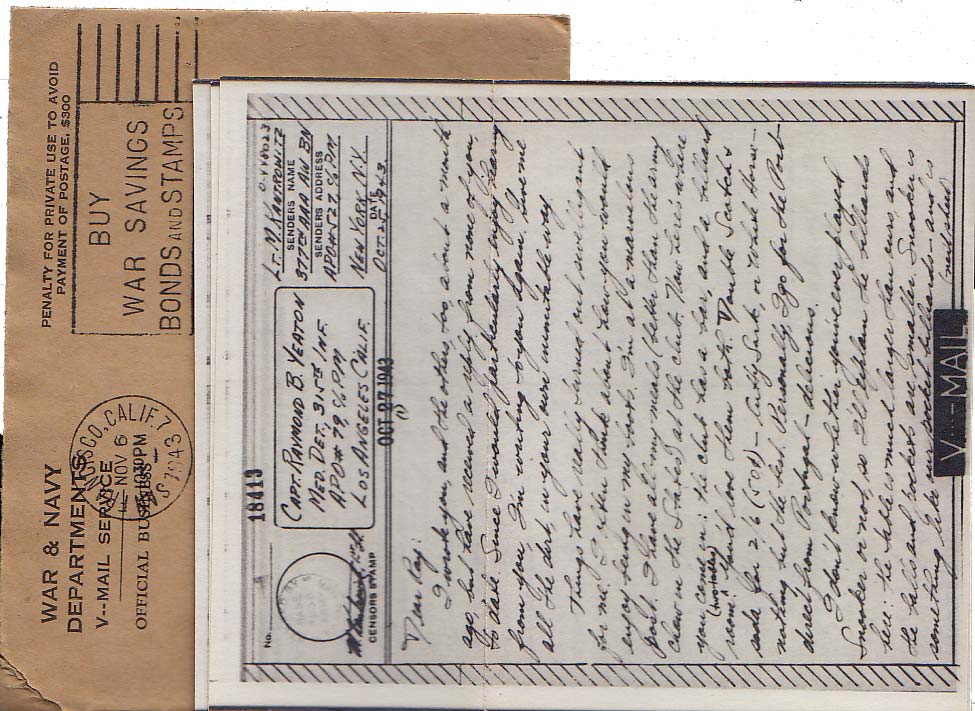 PENALTY FOR PRIVATE USE TO AVOID
PAYMENT OF POSTAGE, $300
BUY
WAR SAVINGS
BONDS AND STAMPS
WAR & NAVY
DEPARTMENTS
V--MAIL SERVICE
OFFICIAL BUSINESS
CISCO, CALIF. 7
NOV 6
1030PM
1943
18413
No.
CENSORS STAMP
CAPT. RAYMOND B. YEATON
MED. DET. 315th INF.
APO # 79 c/o PM
LOS ANGELES CALIF.
LT. M. KANTROWITZ O-448023
SENDERS NAME
377th AAA AW BN
SENDERS ADDRESS
APO # 527 c/o PM
NEW YORK N.Y.
DATE
OCT. 25 1943
OCT 27 1943
(1)
Dear Ray:
I wrote you, and the others, too, about a month
ago, but have received a reply from none of you
to date. Since I would particularly enjoy hearing
from you, I'm writing to you again. Give me
all the dirt, in your own inimitable way.
Things have really turned out swell, and
for me. I often think about how you would
enjoy being in my boots. I'm at a marvelous
post. I have all my meals (better than the army
chow in the States) at the club. Now here's where
you come in: the club has a bar, and a billiard
room. You'd love them both. Double Scotch &
soda for 2/6 (50¢) — Cutty Sark, or White Horse —
nothing but the best. Personally, I go for the Port
direct from Portugal — delicious.
I don't know whether you've ever played
Snooker or not, so I'll explain the billiards
here: the table is much larger than ours, and
the balls and pockets are smaller. Snooker is
something like pocket billiards — and is
V--MAIL